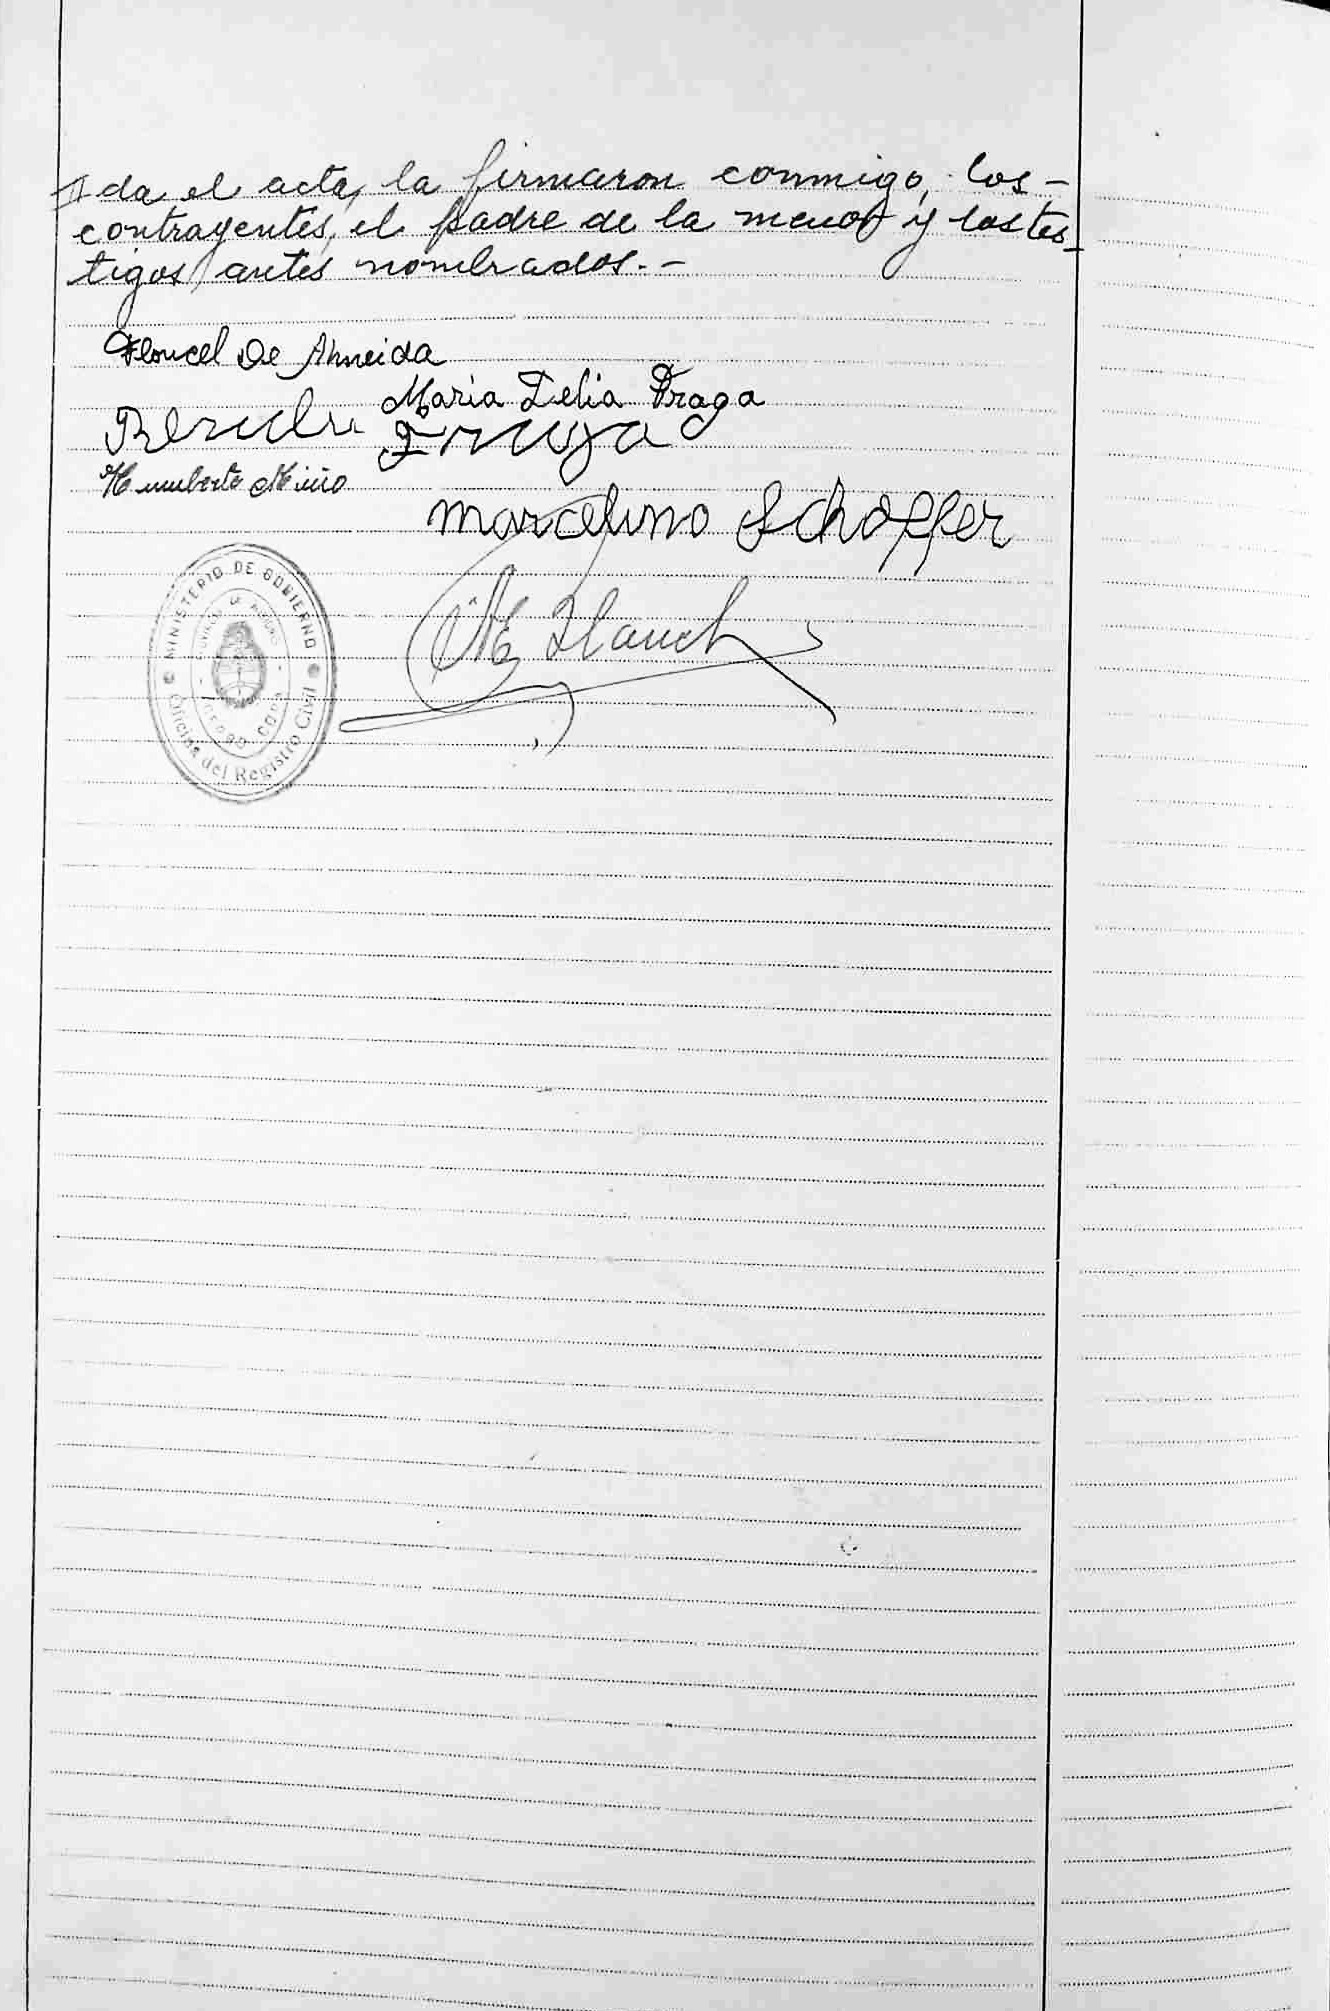 da el acta, la firmaron conmigo, los-
contrayentes, el padre de la menor y los tes-
tigos antes nombrados.-
De Almeida
Maria Delia Fraga
Fraga
Humberto Miño
Marcelino Schoffer
MINISTERIO DE GOBIERNO
Oficina del Registro Civil